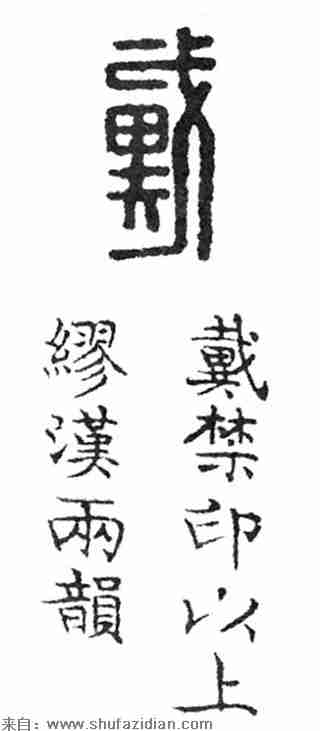 戴
戴禁印以上
繆漢兩韻
来自：www.shufazidian.com